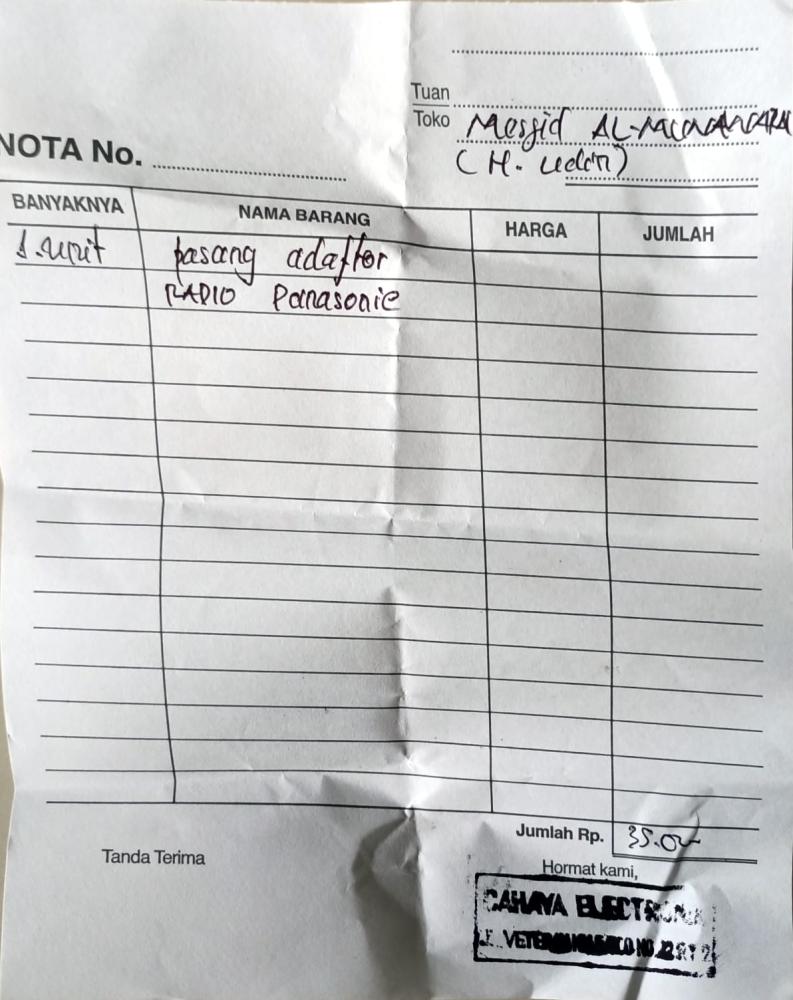 Tuan
Toko Mesjid AL-MUNAWARAH
(H. Udin)
NOTA No.
BANYAKNYA NAMA BARANG HARGA JUMLAH
1. unit pasang adaftor
RADIO Panasonic
Jumlah Rp. 35.0
Tanda Terima Hormat kami,
CAHAYA ELECTRONIK
JL. VETERAN NO.